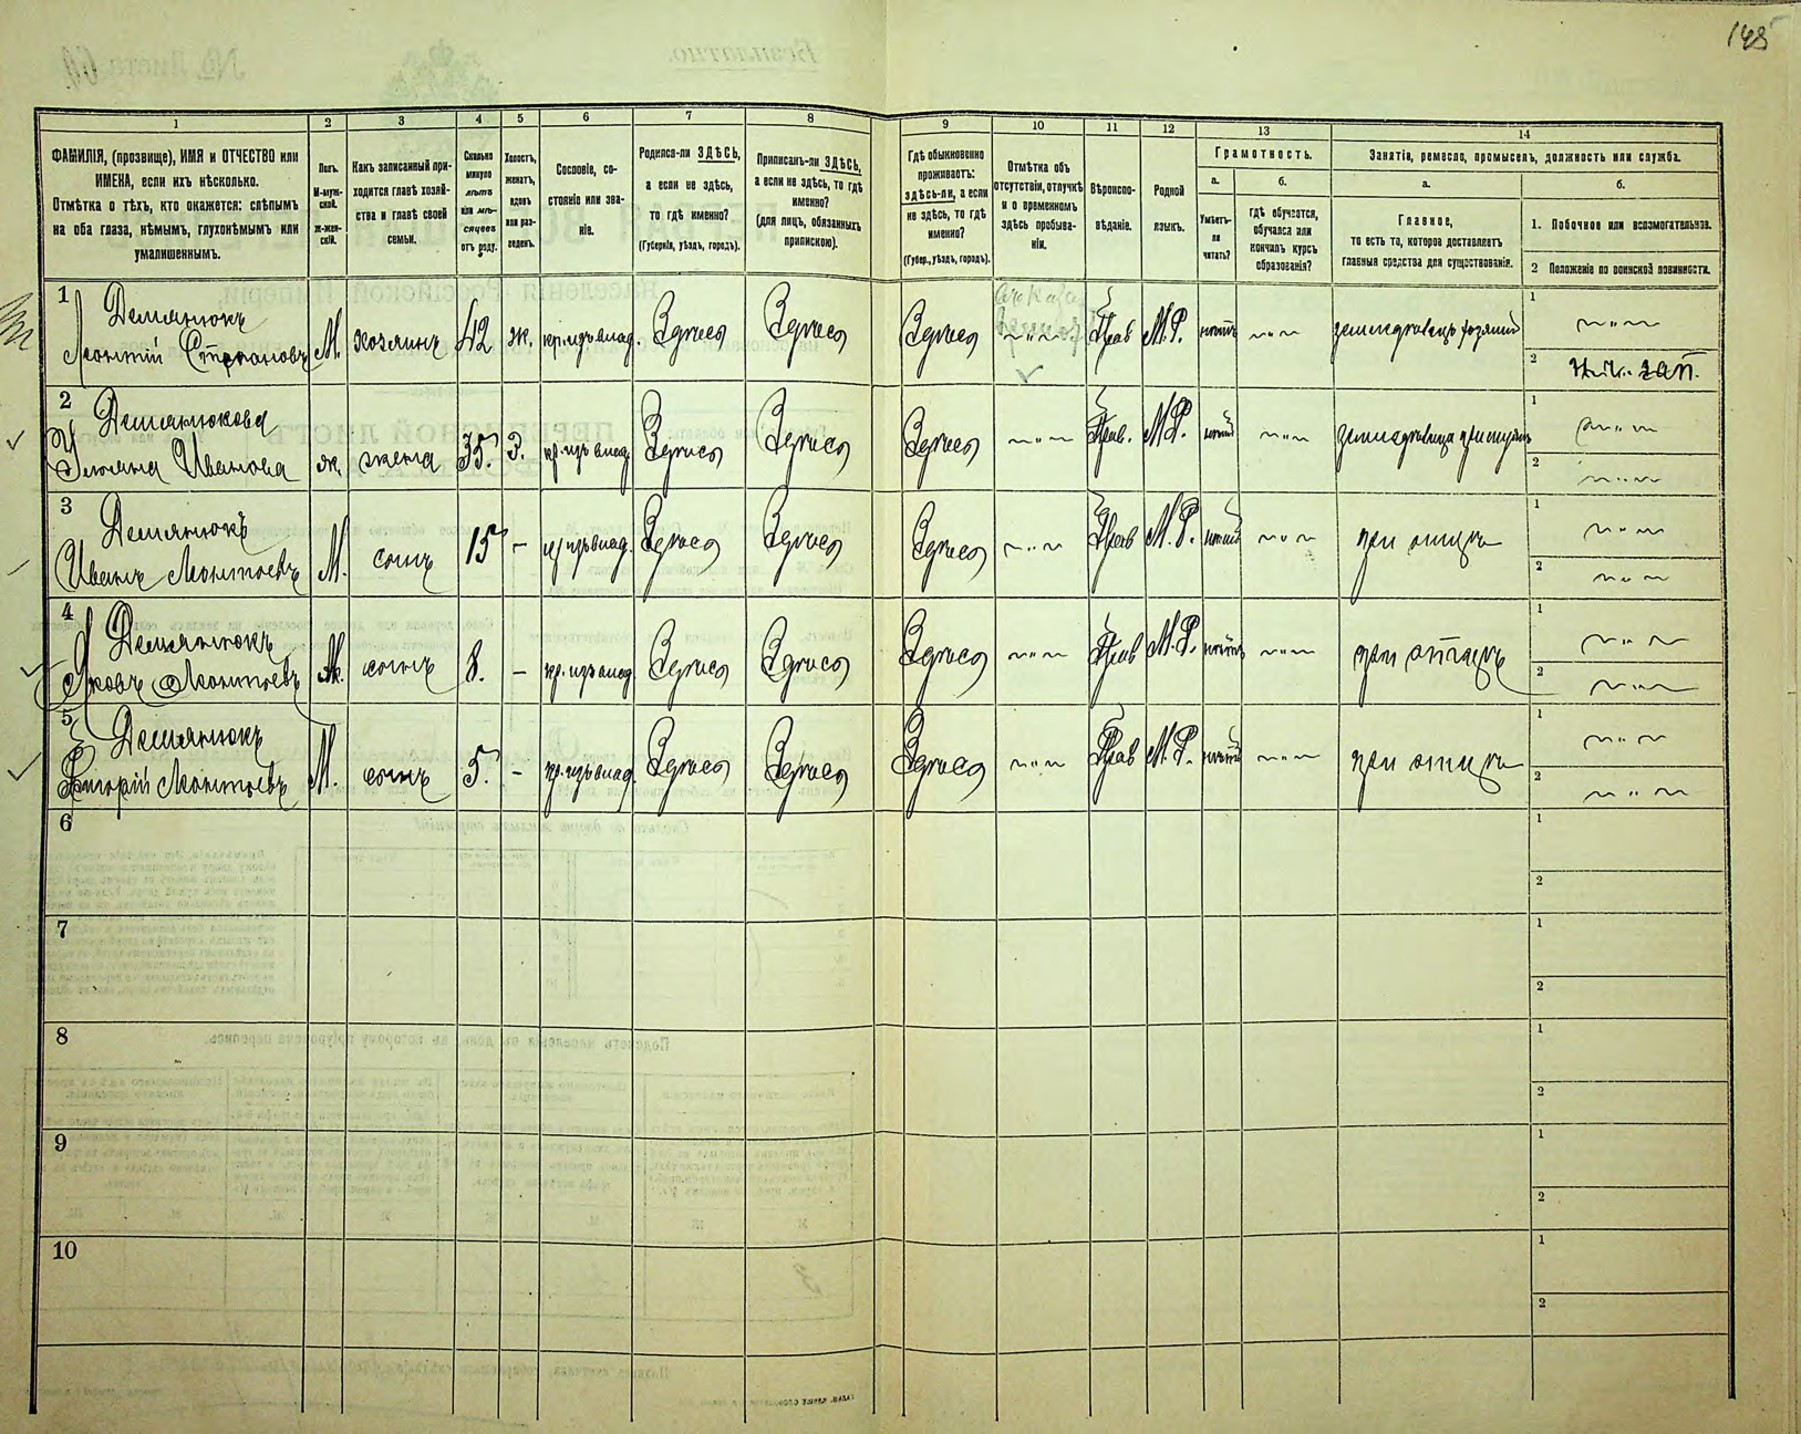 145
1 2 3 4 5 6 7 8 9 10 11 12 13 14
ФАМИЛІЯ, (прозвище), ИМЯ и ОТЧЕСТВО или
ИМЕНА, если ихъ нѣсколько.
Отмѣтка о тѣхъ, кто окажется: слѣпымъ
на оба глаза, нѣмымъ, глухонѣмымъ или
умалишеннымъ.
Полъ.
М-муж-
ской.
Ж-жен-
скій.
Какъ записанный при-
ходится главѣ хозяй-
ства и главѣ своей
семьи.
Сколько
минуло
лѣтъ
или мѣ-
сяцевъ
отъ роду.
Холостъ,
женатъ,
вдовъ
или раз-
веденъ.
Сословіе, со-
стояніе или зва-
ніе.
Родился-ли ЗДѢСЬ,
а если не здѣсь,
то гдѣ именно?
(Губернія, уѣздъ, городъ).
Приписанъ-ли ЗДѢСЬ,
а если не здѣсь, то гдѣ
именно?
(для лицъ, обязанныхъ
припискою).
Гдѣ обыкновенно
проживаетъ:
здѣсь-ли, а если
не здѣсь, то гдѣ
именно?
(Губер., уѣздъ, городъ).
Отмѣтка объ
отсутствіи, отлучкѣ
и о временномъ
здѣсь пребыва-
ніи.
Вѣроиспо-
вѣданіе.
Родной
языкъ.
Грамотность.
а.
Умѣетъ-
ли
читать?
б.
гдѣ обучается,
обучался или
кончилъ курсъ
образованія?
Занятіе, ремесло, промыселъ, должность или служба.
а.
Главное,
то есть то, которое доставляетъ
главныя средства для существованія.
б.
1. Побочное или вспомогательное.
2 Положеніе по воинской повинности.
1
Демянюкъ
Леонтій Степановъ М. хозяинъ 42 ж. кр. изъ влад. Здѣсь Здѣсь Здѣсь Прав М.Р. нѣтъ земледѣлецъ хозяинъ
1
2
2
Демянюкова
Ульяна Иванова ж. жена 35. З. кр. изъ влад. Здѣсь Здѣсь Здѣсь Прав. М.Р. нѣтъ
1
2
3
Демянюкъ
Иванъ Леонтьевъ М. сынъ 15 – кр. изъ влад. Здѣсь Здѣсь Здѣсь Прав М.Р. нѣтъ при отцѣ
1
2
4
Демянюкъ
Яковъ Леонтьевъ М. сынъ 8. – кр. изъ влад Здѣсь Здѣсь Здѣсь Прав М.Р. нѣтъ при отцѣ
1
2
5
Демянюкъ
Григорій Леонтьевъ М. сынъ 5. – кр. изъ влад Здѣсь Здѣсь Здѣсь Прав М.Р. нѣтъ при отцѣ
1
2
6
1
2
7
1
2
8
1
2
9
1
2
10
1
2